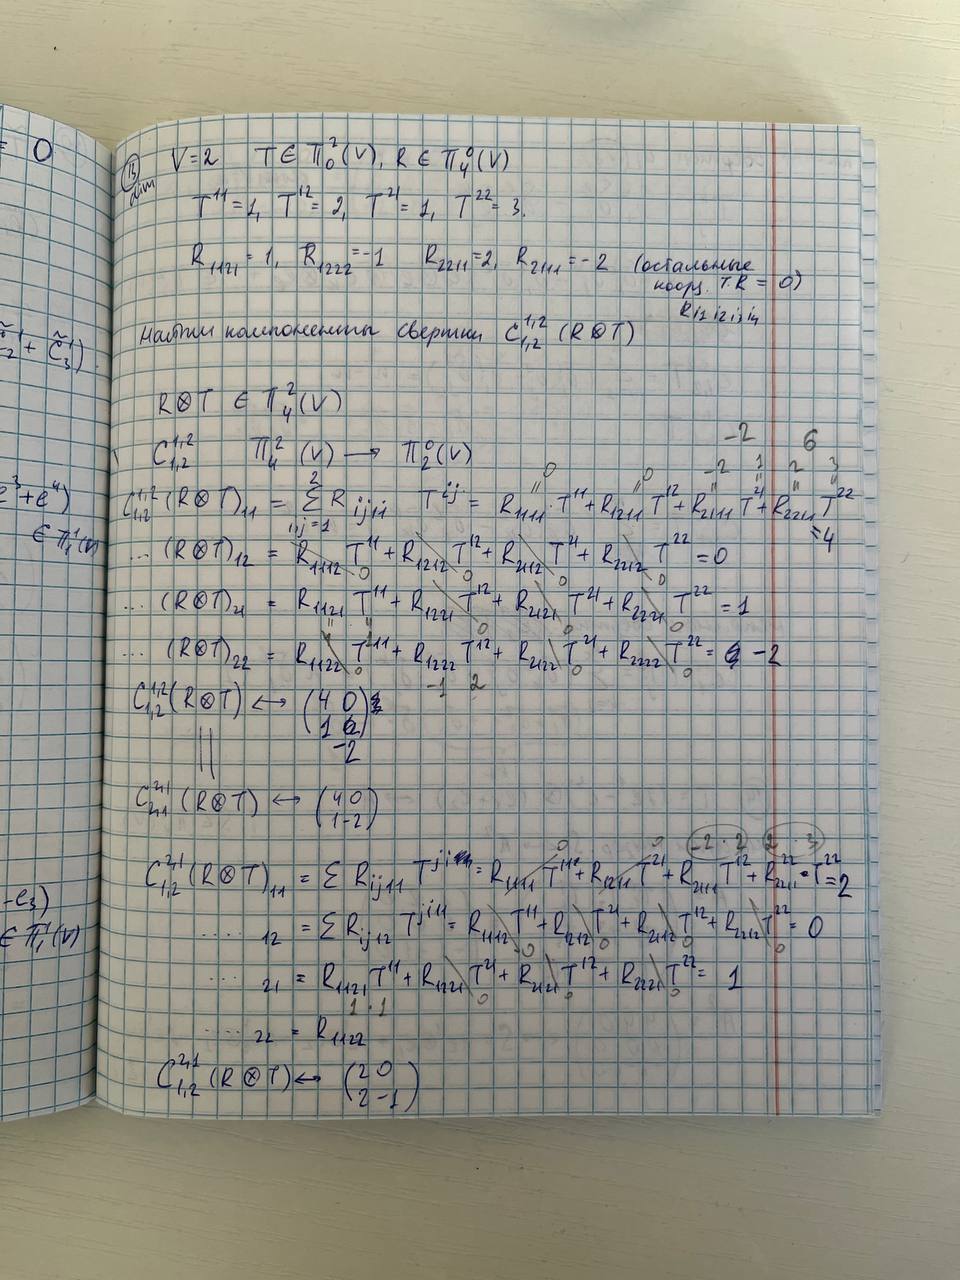 = 0
-2 + C̃₃¹)
e³+e⁴)
∈ П₁¹(V)
-e₃)
∈ П₁¹(V)
(13) V=2 T ∈ П₀²(V), R ∈ П₄⁰(V)
T¹¹=1, T¹²=2, T²¹=1, T²²=3.
R₁₁₂₁=1, R₁₂₂₂=-1 R₂₂₁₁=2, R₂₁₁₁=-2 (остальные
коорд. T.R = 0)
R i₁ i₂ i₃ i₄
Найти компоненты свертки C₁,₂^1,2 (R⊗T)
R⊗T ∈ П₄²(V)
C₁,₂^1,2 П₄²(V) → П₂⁰(V)
-2 6
0 0 -2 1 2 3
C₁,₂^1,2 (R⊗T)₁₁ = Σ²_i,j=1 R_ij11 T^ij = R₁₁₁₁·T¹¹+R₁₂₁₁T¹²+R₂₁₁₁T²¹+R₂₂₁₁T²²
=4
... (R⊗T)₁₂ = R₁₁₁₂T¹¹+R₁₂₁₂T¹²+R₂₁₁₂T²¹+R₂₂₁₂T²²=0
0 0 0 0
... (R⊗T)₂₁ = R₁₁₂₁T¹¹+R₁₂₂₁T¹²+R₂₁₂₁T²¹+R₂₂₂₁T²²=1
1 1 0 0 0
... (R⊗T)₂₂ = R₁₁₂₂T¹¹+R₁₂₂₂T¹²+R₂₁₂₂T²¹+R₂₂₂₂T²²= -2
0 -1 2 0 0
C₁,₂^1,2(R⊗T) ↔ (4 0
1
-2)
||
C₂,₁^2,1(R⊗T) ↔ (4 0
1 -2)
0 0 -2·2 2·3
C₁,₂^2,1(R⊗T)₁₁ = Σ R_ij11 T^ji = R₁₁₁₁T¹¹+R₁₂₁₁T²¹+R₂₁₁₁T¹²+R₂₂₁₁·T²²=2
.... ₁₂ = Σ R_ij12 T^ji = R₁₁₁₂T¹¹+R₁₂₁₂T²¹+R₂₁₁₂T¹²+R₂₂₁₂T²²=0
0 0 0 0
.... ₂₁ = R₁₁₂₁T¹¹+R₁₂₂₁T²¹+R₂₁₂₁T¹²+R₂₂₂₁T²²= 1
1 · 1 0 0 0
.... ₂₂ = R₁₁₂₂
C₁,₂^2,1(R⊗T) ↔ (2 0
2 -1)